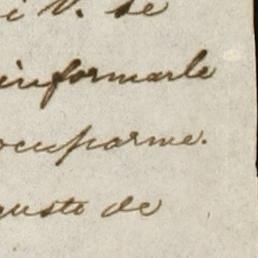 i V. se
informarle
ocuparme.
gusto de